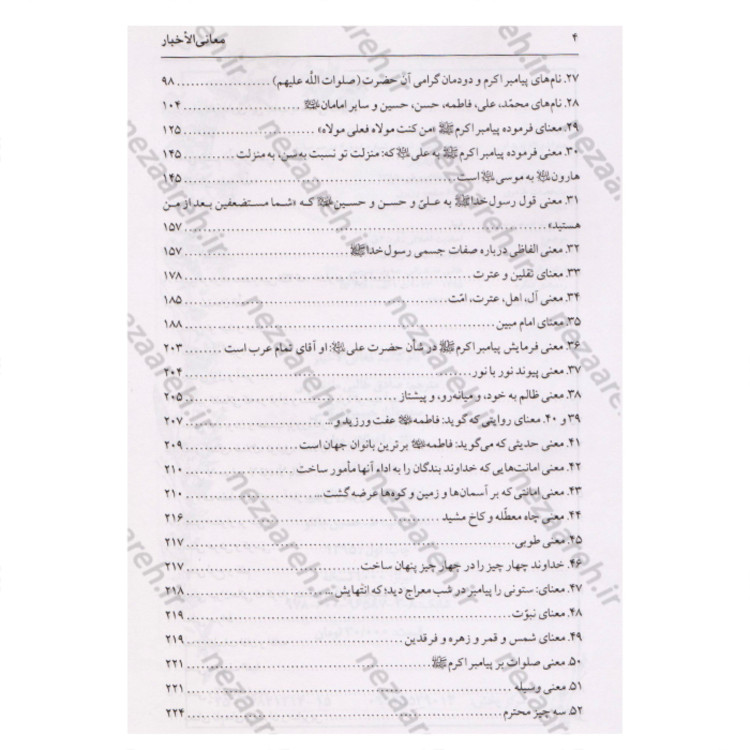 ۴ معانی‌الأخبار
۲۷. نام‌های پیامبر اکرم و دودمان گرامی آن حضرت (صلوات اللّه علیهم) ۹۸
۲۸. نام‌های محمّد، علی، فاطمه، حسن، حسین و سایر امامان ﷺ ۱۰۴
۲۹. معنای فرموده پیامبر اکرم ﷺ «من کنت مولاه فعلی مولاه» ۱۲۵
۳۰. معنی فرموده پیامبر اکرم ﷺ به علی که: منزلت تو نسبت به من، به منزلت ۱۴۵
هارون به موسی است ۱۴۵
۳۱. معنی قول رسول خدا ﷺ به علیّ و حسن و حسین که «شما مستضعفین بعد از من
هستید» ۱۵۷
۳۲. معنی الفاظی درباره صفات جسمی رسول خدا ﷺ ۱۵۷
۳۳. معنای ثقلین و عترت ۱۷۸
۳۴. معنی آل، اهل، عترت، امّت ۱۸۵
۳۵. معنای امام مبین ۱۸۸
۳۶. معنی فرمایش پیامبر اکرم ﷺ در شأن حضرت علی: او آقای تمام عرب است ۲۰۳
۳۷. معنی پیوند نور با نور ۲۰۴
۳۸. معنی ظالم به خود، و میانه‌رو، و پیشتاز ۲۰۵
۳۹ و ۴۰. معنای روایتی که گوید: فاطمه عفت ورزید و... ۲۰۷
۴۱. معنی حدیثی که می‌گوید: فاطمه برترین بانوان جهان است ۲۰۹
۴۲. معنی امانت‌هایی که خداوند بندگان را به اداء آنها مأمور ساخت ۲۱۰
۴۳. معنی امانتی که بر آسمان‌ها و زمین و کوه‌ها عرضه گشت... ۲۱۰
۴۴. معنی چاه معطّله و کاخ مشید ۲۱۶
۴۵. معنی طوبی ۲۱۷
۴۶. خداوند چهار چیز را در چهار چیز پنهان ساخت ۲۱۷
۴۷. معنای: ستونی را پیامبر در شب معراج دید؛ که انتهایش ... ۲۱۸
۴۸. معنای نبوّت ۲۱۹
۴۹. معنای شمس و قمر و زهره و فرقدین ۲۱۹
۵۰. معنی صلوات بر پیامبر اکرم ﷺ ۲۲۱
۵۱. معنی وسیله ۲۲۱
۵۲. سه چیز محترم ۲۲۴
nezaareh.ir